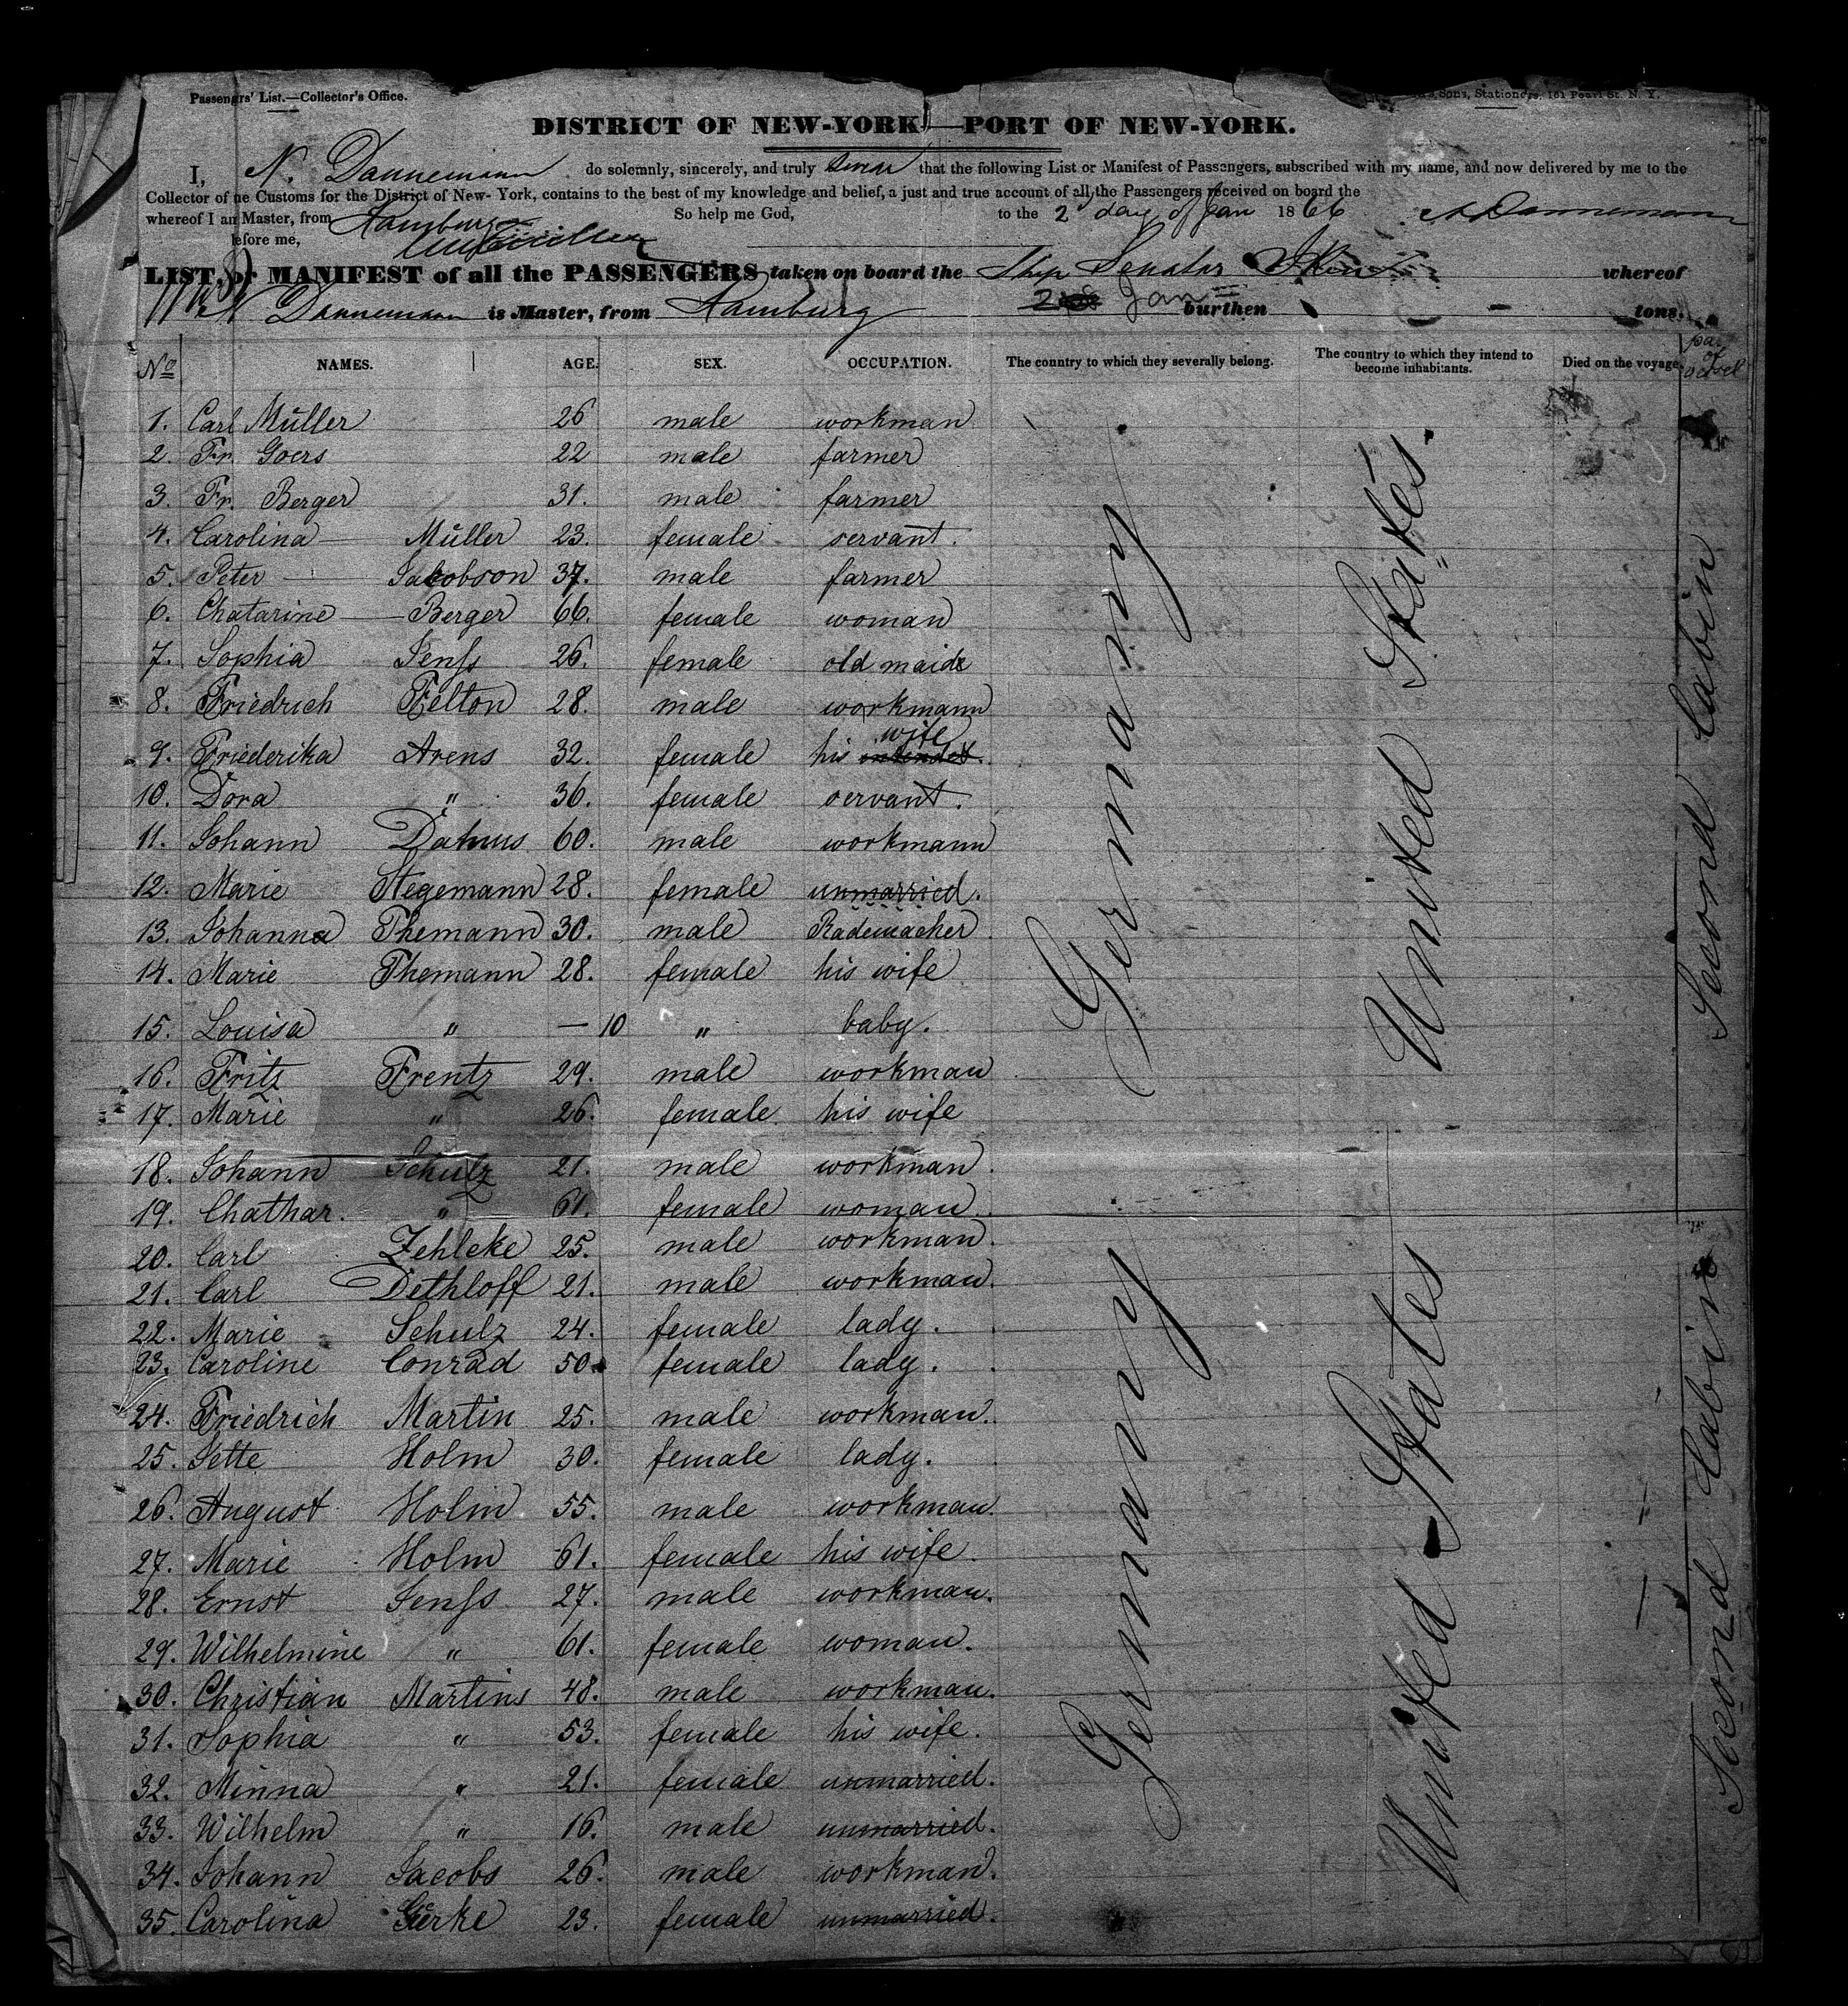 Passengers' List.—Collector's Office.
Sons, Stationers, 161 Pearl St. N. Y.
DISTRICT OF NEW-YORK—PORT OF NEW-YORK.
I, N. Dannemann do solemnly, sincerely, and truly swear that the following List or Manifest of Passengers, subscribed with my name, and now delivered by me to the
Collector of he Customs for the District of New-York, contains to the best of my knowledge and belief, a just and true account of all the Passengers received on board the
whereof I am Master, from Hamburg So help me God, to the 2d day of Jan 1866 N Dannemann
before me,
LIST, or MANIFEST of all the PASSENGERS taken on board the Ship Senator whereof
N Dannemann is Master, from Hamburg 2 Jan burthen tons.
No NAMES. AGE. SEX. OCCUPATION. The country to which they severally belong. The country to which they intend to become inhabitants. Died on the voyage. part of vessel
1. Carl Müller 26 male workman
2. Fr. Goers 22 male farmer
3. Fr. Berger 31. male farmer
4. Carolina Müller 23. female servant.
5. Peter Jacobson 37. male farmer
6. Chatarine Berger 66. female woman
7. Sophia Jenss 26. female old maid
8. Friedrich Felton 28. male workmann
9. Friederika Arens 32. female his wife
10. Dora " 36. female servant.
11. Johann Dahms 60. male workmann
12. Marie Stegemann 28. female unmarried.
13. Johann Themann 30. male Rademacher
14. Marie Themann 28. female his wife
15. Louisa " — 10 " baby.
16. Fritz Frentz 29. male workman
17. Marie " 26. female his wife
18. Johann Schulz 21. male workman.
19. Chathar. " 61. female woman.
20. Carl Zehlcke 25. male workman.
21. Carl Dethloff 21. male workman.
22. Marie Schulz 24. female lady.
23. Caroline Conrad 50. female lady.
24. Friedrich Martin 25. male workman.
25. Jette Holm 30. female lady.
26. August Holm 55. male workman.
27. Marie Holm 61. female his wife.
28. Ernst Jenss 27. male workman.
29. Wilhelmine " 61. female woman.
30. Christian Martins 48. male workman.
31. Sophia " 53. female his wife.
32. Minna " 21. female unmarried.
33. Wilhelm " 16. male unmarried.
34. Johann Jacobs 26. male workman.
35. Carolina Gerke 23. female unmarried.
Germany
Germany
United States.
United States
Second Cabin
Second Cabin